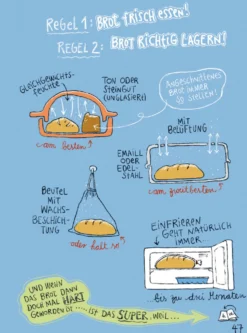 REGEL 1: BROT FRISCH ESSEN!
REGEL 2: BROT RICHTIG LAGERN!
GLEICHGEWICHTS-
FEUCHTE
TON ODER
STEINGUT
(UNGLASIERT)
ANGESCHNITTENES
BROT IMMER
SO STELLEN!
am besten.
MIT
BELÜFTUNG
EMAILL ODER
EDEL-
STAHL
am zweitbesten.
BEUTEL
MIT
WACHS-
BESCHICH-
TUNG
oder halt so
EINFRIEREN
GEHT NATÜRLICH
IMMER...
bis zu drei Monaten
UND WENN
DAS BROT DANN
DOCH MAL HART
GEWORDEN IST ... IST DAS SUPER, WEIL...
47